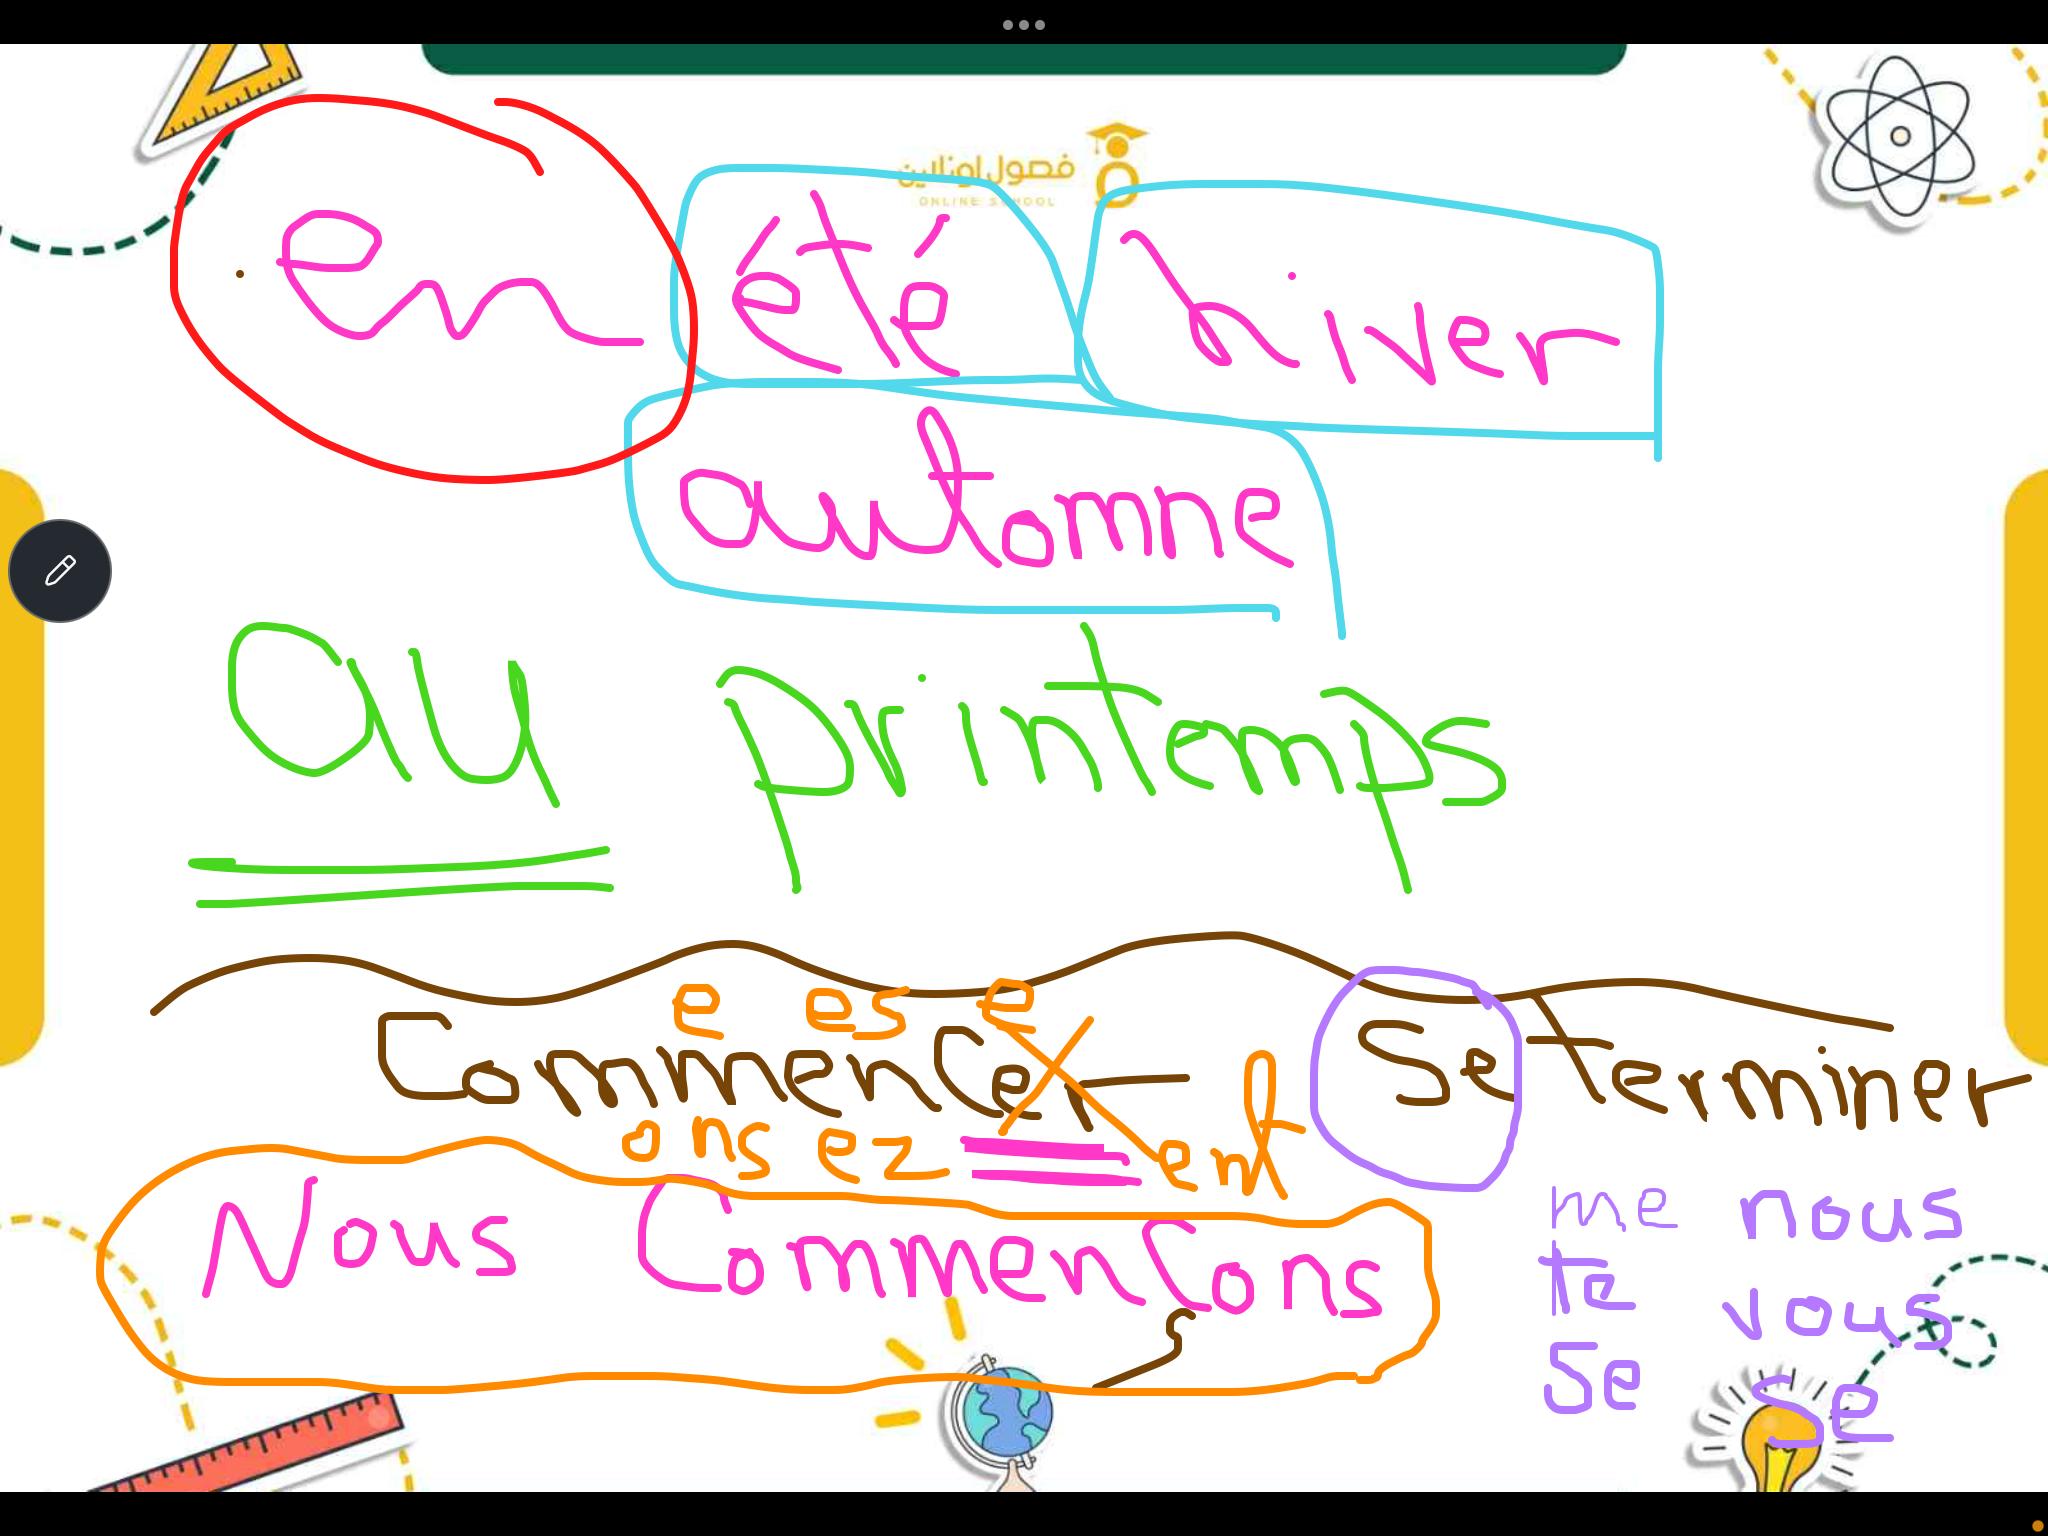 فصول اونلاين
ONLINE SCHOOL
en été hiver
automne
au printemps
e es e
Commencer Se terminer
ons ez ent
Nous Commençons
me nous
te vous
se se